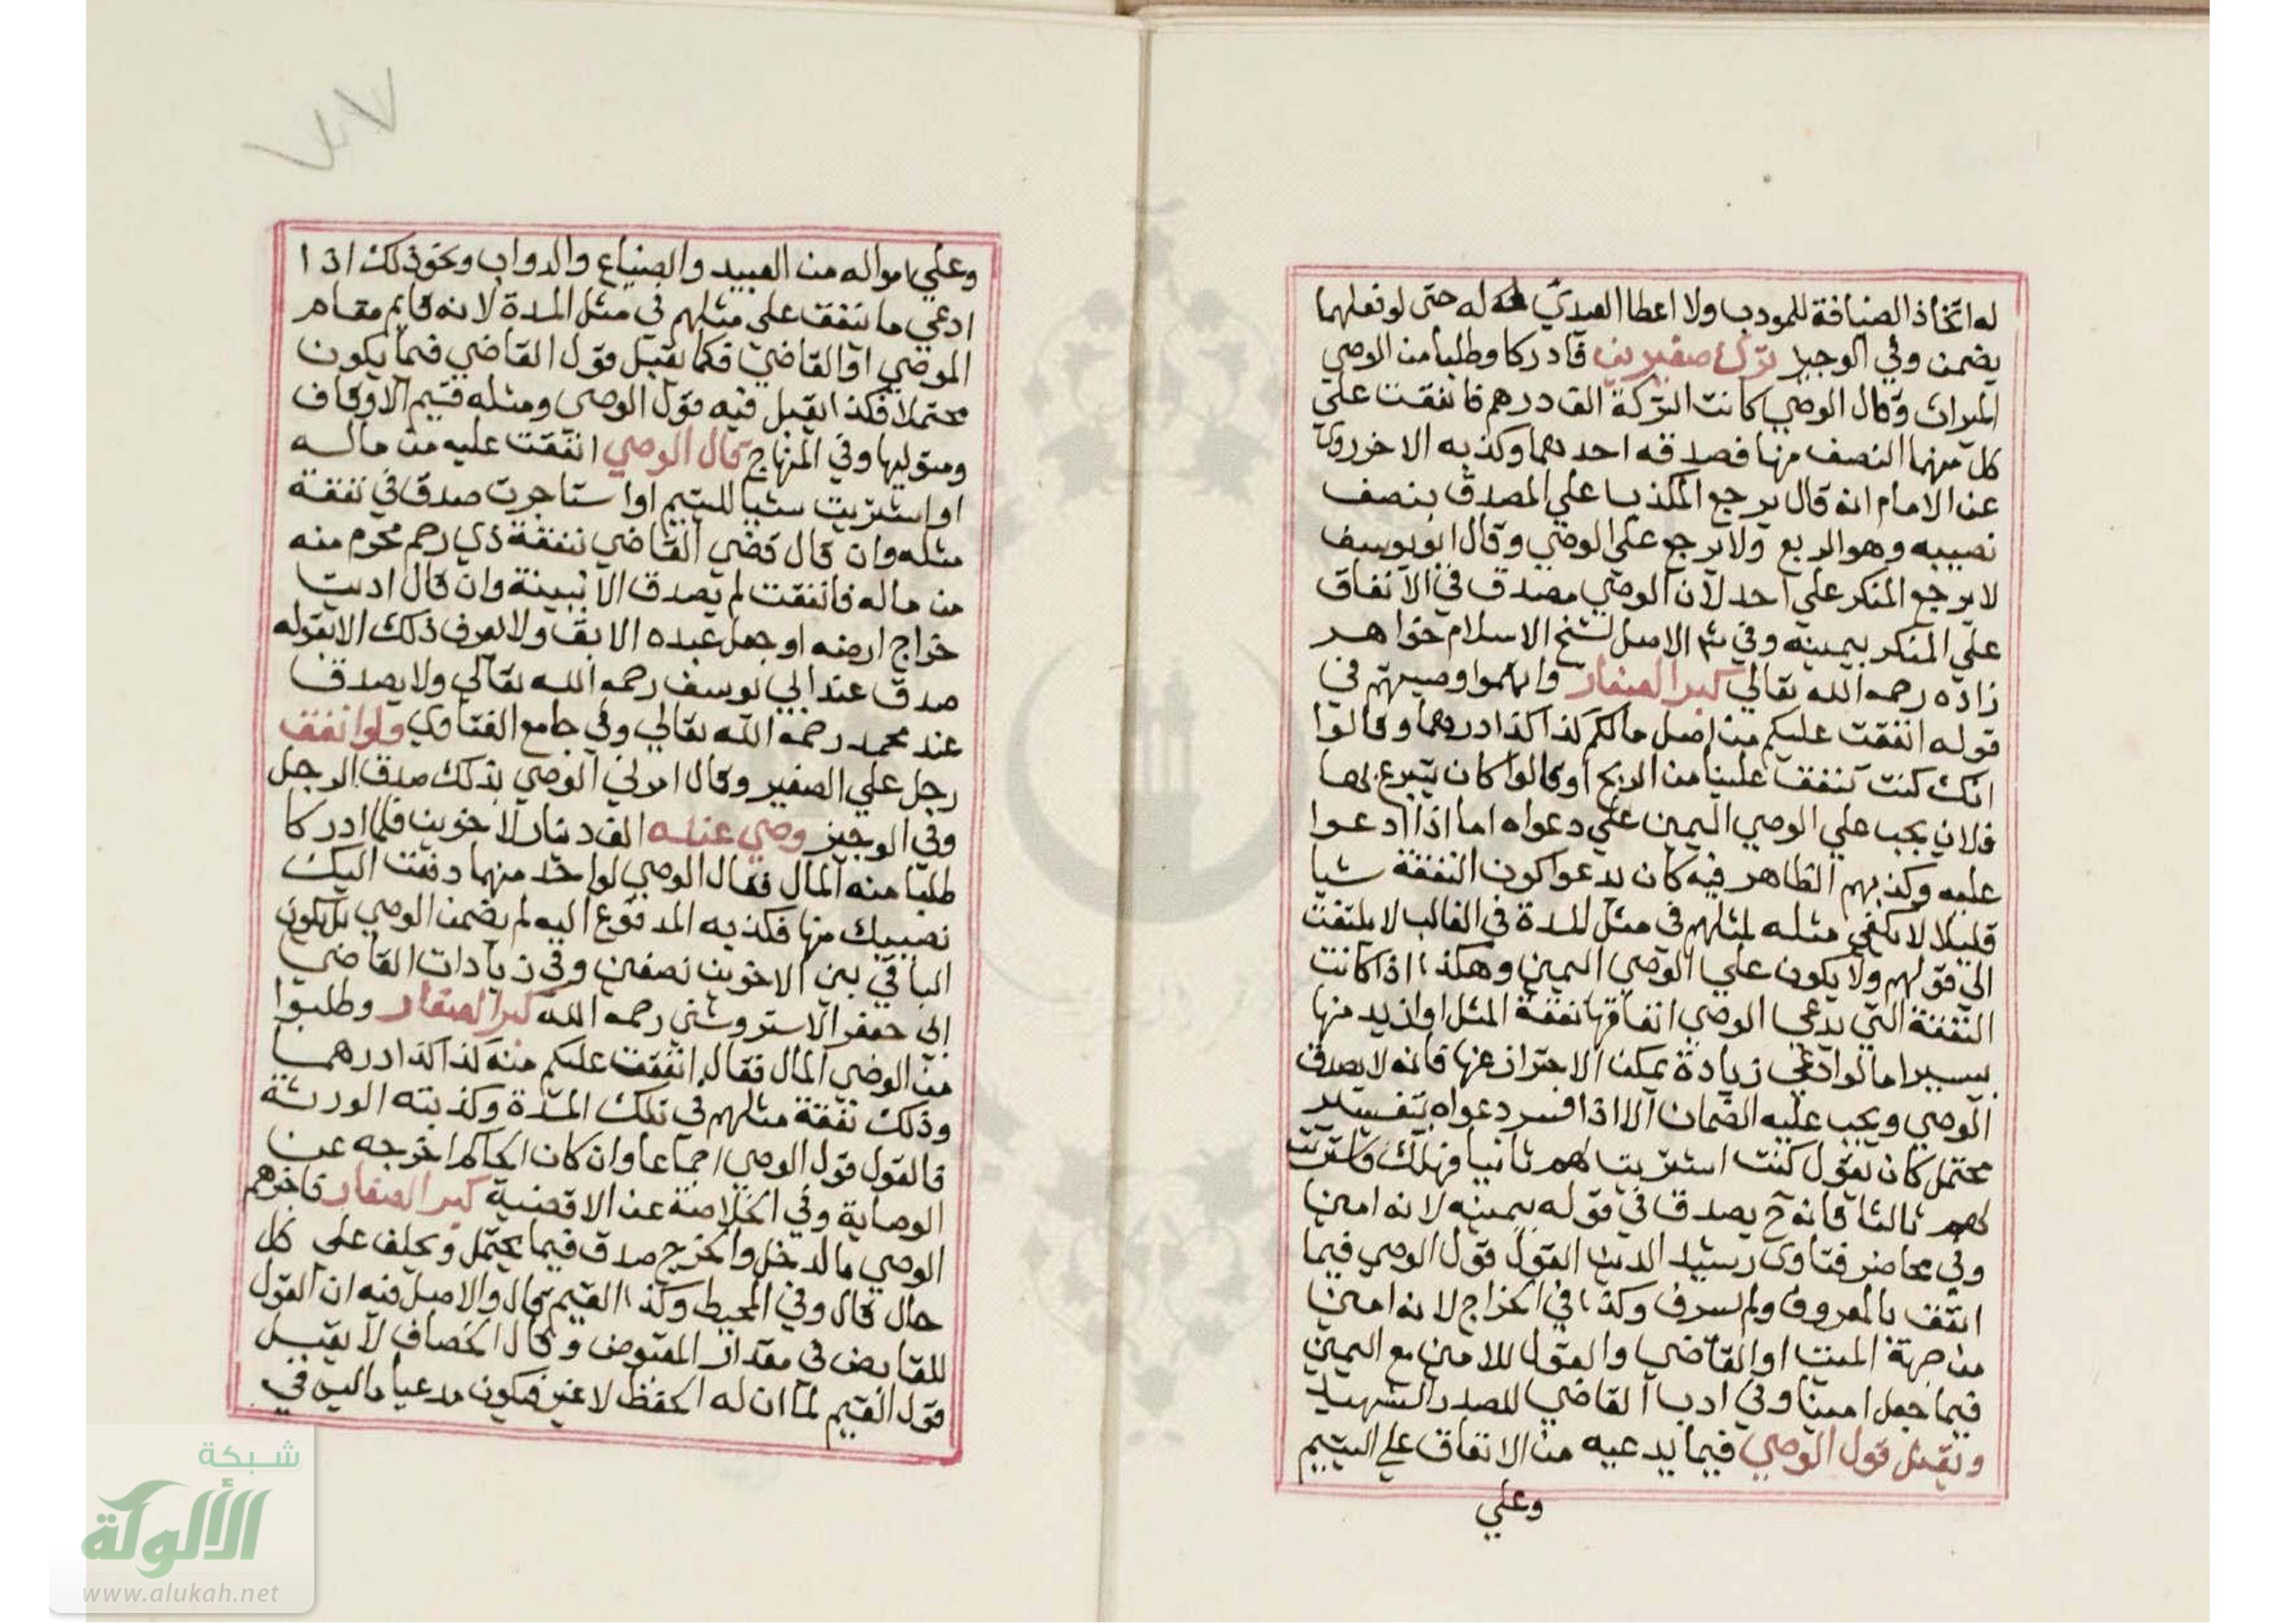 له اتخاذ الضيافة للمودب ولا اعطا العيدي له حتى لو فعلهما
يضمن وفي الوجيز ترك صغيرين فادركا وطلبا من الوصي
الميراث وقال الوصي كانت التركة الف درهم فانفقت علي
كل منهما النصف منها فصدقه احدهما وكذبه الاخر روي
عن الامام انه قال يرجع المكذب علي المصدق بنصف
نصيبه وهو الربع ولا يرجع علي الوصي وقال ابو يوسف
لا يرجع المنكر علي احد لان الوصي مصدق في الانفاق
علي المنكر بيمينه وفي شم الاصل لشيخ الاسلام خواهر
زاده رحمه الله تعالي كبر الصغار واتهموا وصيهم في
قوله انفقت عليكم من اصل مالكم كذا كذا درهما وقالوا
انك كنت تنفق علينا من الربح او قالوا كان يتبرع بها
فلان يجب علي الوصي اليمين علي دعواه اما اذا ادعوا
عليه وكذبهم الظاهر فيه كان يدعوا كون النفقة شيا
قليلا لا يكفي مثله لمثلهم في مثل المدة في الغالب لا يلتفت
الي قولهم ولا يكون علي الوصي اليمين وهكذا اذا كانت
النفقة التي يدعي الوصي انفاقها نفقة المثل او ازيد منها
بيسير اما لو ادعي زيادة يمكن الاحتراز عنها فانه لا يصدق
الوصي ويجب عليه الضمان الا اذا فسر دعواه بتفسير
محتمل كان يقول كنت اشتريت لهم ثانيا فهلك فاشتريت
لهم ثالثا فانه ح يصدق في قوله بيمينه لانه امين
وفي محاضر فتاوى رشيد الدين القول قول الوصي فيما
انفق بالمعروف ولم يسرف وكذا في الخراج لانه امين
من جهة الميت او القاضي والقول للامين مع اليمين
فيما جعل امينا وفي ادب القاضي للصدر الشهيد
ويقبل قول الوصي فيما يدعيه من الانفاق علي اليتيم
وعلي
٧٧
وعلي امواله من العبيد والضياع والدواب ونحو ذلك اذا
ادعي ما ينفق علي مثلهم في مثل المدة لانه قايم مقام
الموصي او القاضي فكما يقبل قول القاضي فيما يكون
محتملا فكذا يقبل فيه قول الوصي ومثله قيم الاوقاف
ومتوليها وفي المنهاج قال الوصي انفقت عليه من ماله
او اشتريت شيا لليتيم او استاجرت صدق في نفقة
مثله وان قال قضي القاضي بنفقة ذي رحم محرم منه
من ماله فانفقت لم يصدق الا ببينة وان قال اديت
خراج ارضه او جعل عبده الابق ولا يعرف ذلك الا بقوله
صدق عند ابي يوسف رحمه الله تعالي ولا يصدق
عند محمد رحمه الله تعالي وفي جامع الفتاوي ولو انفق
رجل علي الصغير وقال امرني الوصي بذلك صدق الرجل
وفي الوجيز وصي عنده الف دينار لاخوين فلما ادركا
طلبا منه المال فقال الوصي لواحد منهما دفعت اليك
نصيبك منها فكذبه المدفوع اليه لم يضمن الوصي بل يكون
الباقي بين الاخوين نصفين وفي زيادات القاضي
ابي جعفر الاستروشني رحمه الله كبر الصغار وطلبوا
من الوصي المال فقال انفقت عليكم منه كذا كذا درهما
وذلك نفقة مثلهم في تلك المدة وكذبته الورثة
فالقول قول الوصي اجماعا وان كان الحاكم اخرجه عن
الوصاية وفي الخلاصة عن الاقضية كبر الصغار فاخبرهم
الوصي بالدخل والخرج صدق فيما يحتمل ويحلف علي كل
حال قال وفي المحيط وكذا القيم قال والاصل فيه ان القول
للقابض في مقدار المقبوض وقال الخصاف لا يقبل
قول القيم لما ان له الحفظ لا غير فيكون مدعيا ما ليس في
شبكة
الألوكة
www.alukah.net